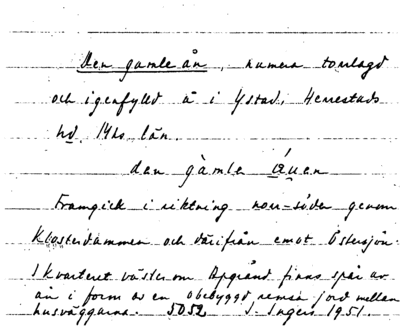 Den gamle ån, numera torrlagd
och igenfylld å i Ystad, Herrestads
hd, Mhs län.
den gàmle áuen
Framgick i riktning norr-söder genom
Klosterdammen och därifrån emot Östersjön.
I kvarteret väster om Apgränd finns spår av
ån i form av en obebyggd remsa jord mellan
husväggarna. 5052 I. Ingers 1951.